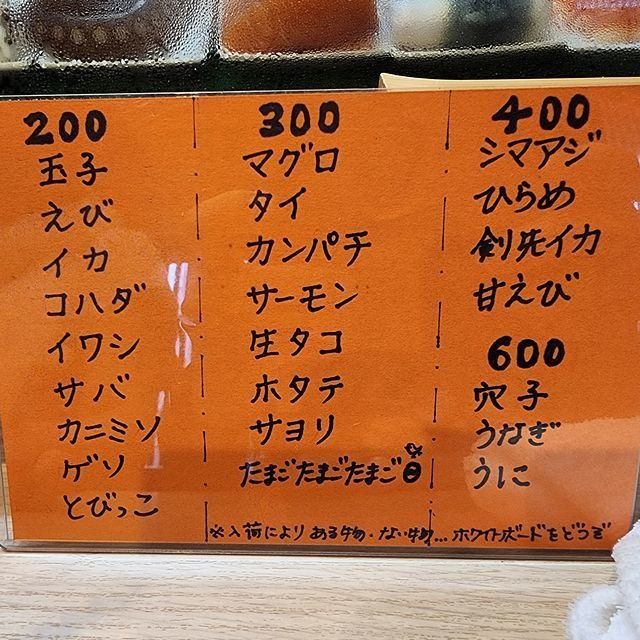 200
玉子
えび
イカ
コハダ
イワシ
サバ
カニミソ
ゲソ
とびっこ
300
マグロ
タイ
カンパチ
サーモン
生タコ
ホタテ
サヨリ
たまごたまごたまご
400
シマアジ
ひらめ
剣先イカ
甘えび
600
穴子
うなぎ
うに
※入荷により ある物・ない物... ホワイトボードをどうぞ